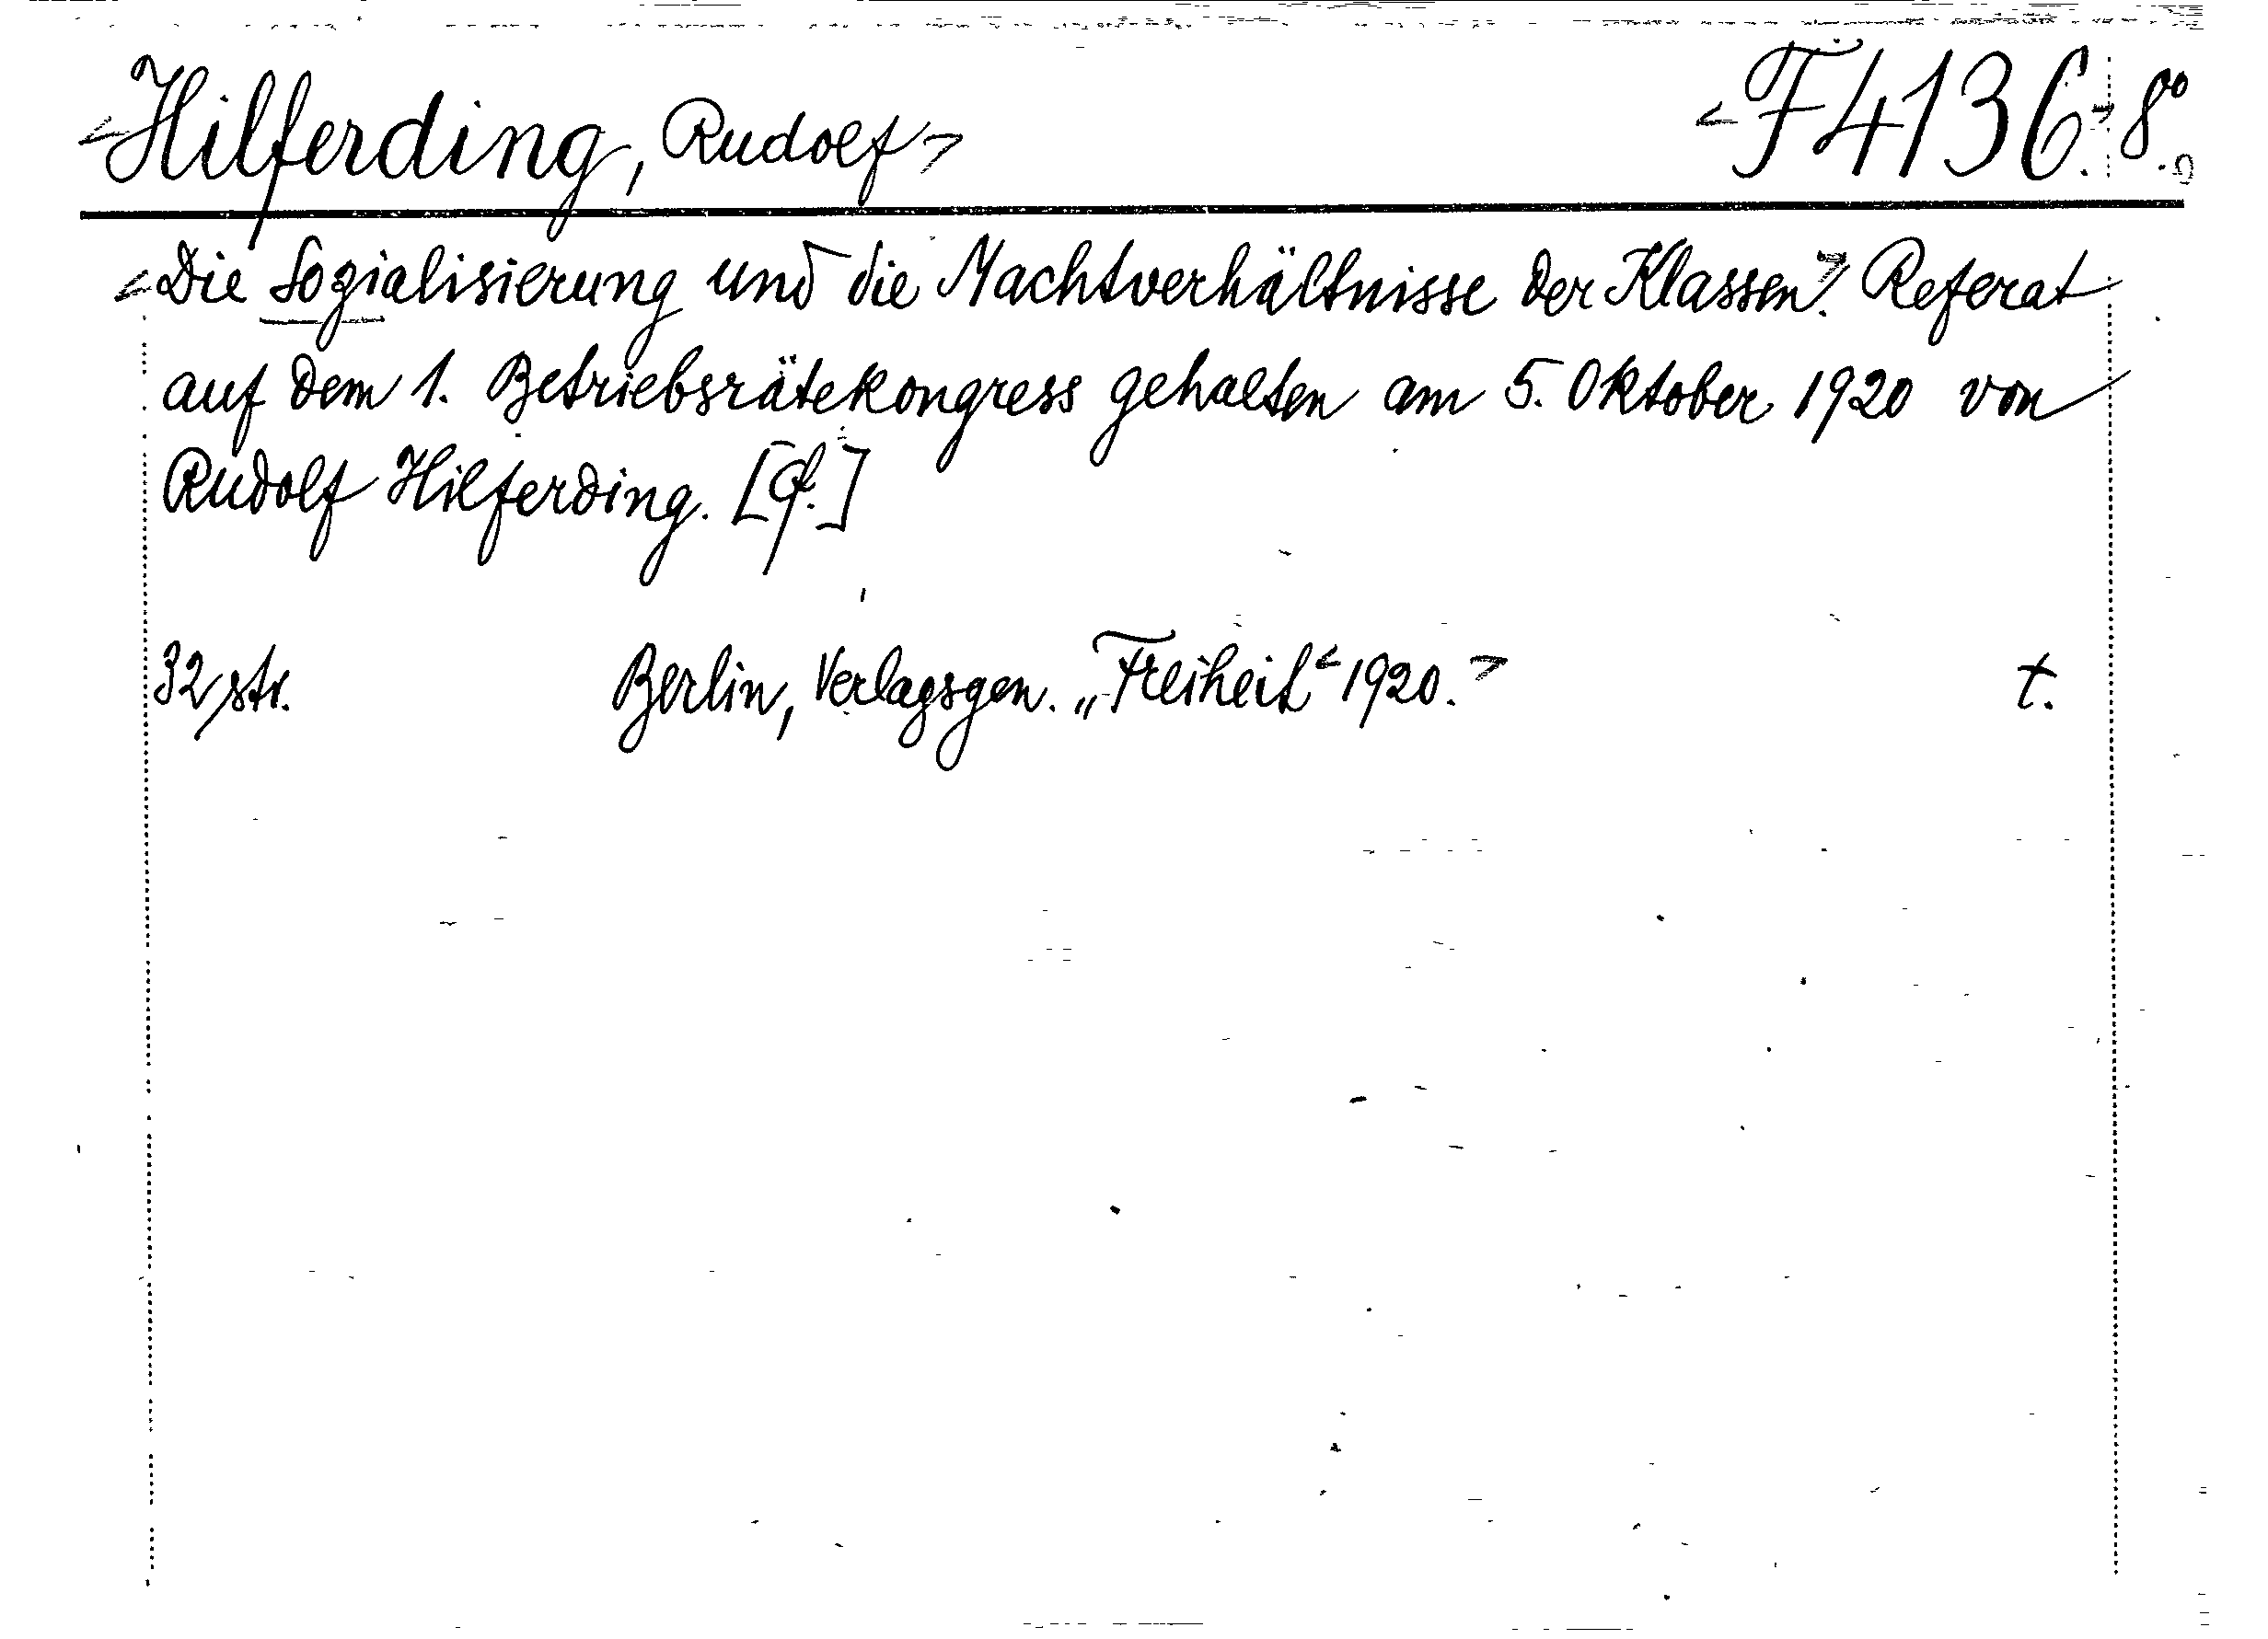 <Hilferding, Rudolf> <F 4136.> 8°.
<Die Sozialisierung und die Machtverhältnisse der Klassen.> Referat
auf dem 1. Betriebsrätekongress gehalten am 5. Oktober 1920 von
Rudolf Hilferding.
32 str. Berlin, Verlagsgen. „Freiheit“ <1920.> t.